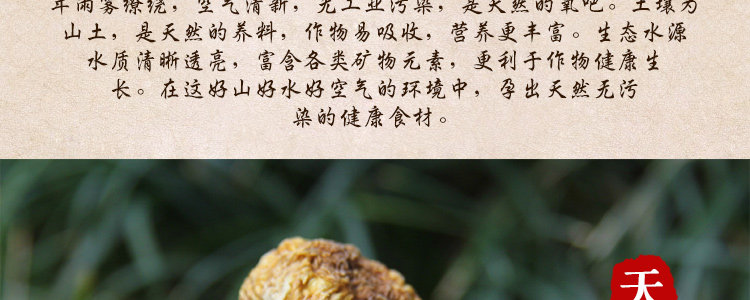 年雨雾缭绕，空气清新，无工业污染，是天然的氧吧。土壤为
山土，是天然的养料，作物易吸收，营养更丰富。生态水源
水质清晰透亮，富含各类矿物元素，更利于作物健康生
长。在这好山好水好空气的环境中，孕出天然无污
染的健康食材。
天